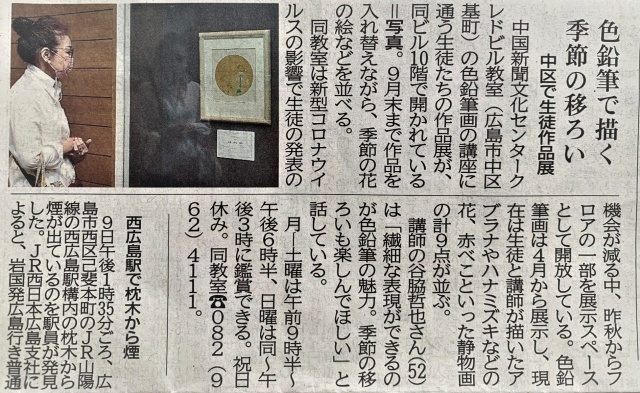 色鉛筆で描く
季節の移ろい
中区で生徒作品展
中国新聞文化センターク
レドビル教室（広島市中区
基町）の色鉛筆画の講座に
通う生徒たちの作品展が、
同ビル10階で開かれている
＝写真。９月末まで作品を
入れ替えながら、季節の花
の絵などを並べる。
同教室は新型コロナウイ
ルスの影響で生徒の発表の
機会が減る中、昨秋からフ
ロアの一部を展示スペース
として開放している。色鉛
筆画は４月から展示し、現
在は生徒と講師が描いたア
ブラナやハナミズキなどの
花、赤べこといった静物画
の計９点が並ぶ。
講師の谷脇哲也さん(52)
は「繊細な表現ができるの
が色鉛筆の魅力。季節の移
ろいも楽しんでほしい」と
話している。
月―土曜は午前９時半～
午後６時半、日曜は同～午
後３時に鑑賞できる。祝日
休み。同教室☎０８２（９
６２）４１１１。
西広島駅で枕木から煙
９日午後１時35分ごろ、広
島市西区己斐本町のＪＲ山陽
線の西広島駅構内の枕木から
煙が出ているのを駅員が発見
した。ＪＲ西日本広島支社に
よると、岩国発広島行き普通